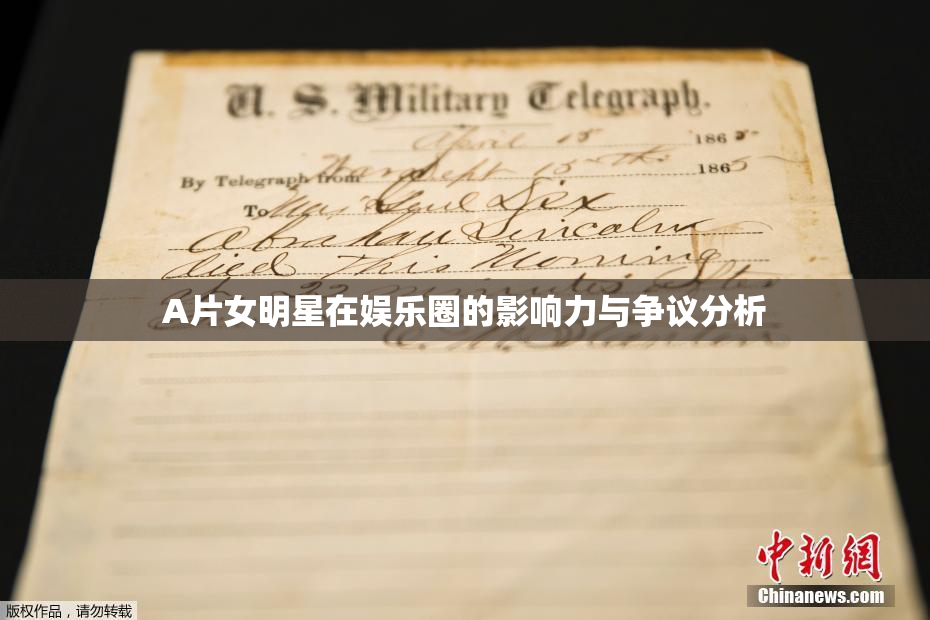 U. S. Military Telegraph.
April 15 1865
By Telegraph from War Dept 15th 1865
To Maj Genl Dix
Abraham Lincoln
died This Morning
at 22 minutes after
A片女明星在娱乐圈的影响力与争议分析
E. M. Stanton
中新網
Chinanews.com
版权作品，请勿转载